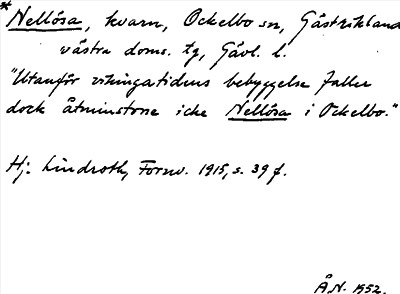 * Nellösa, kvarn, Ockelbo sn, Gästrikland
västra doms. tg, Gävl. l.
"Utanför vikingatidens bebyggelse faller
dock åtminstone icke Nellösa i Ockelbo."
Hj. Lindroth, Fornv. 1915, s. 39 f.
Å.N. 1552.